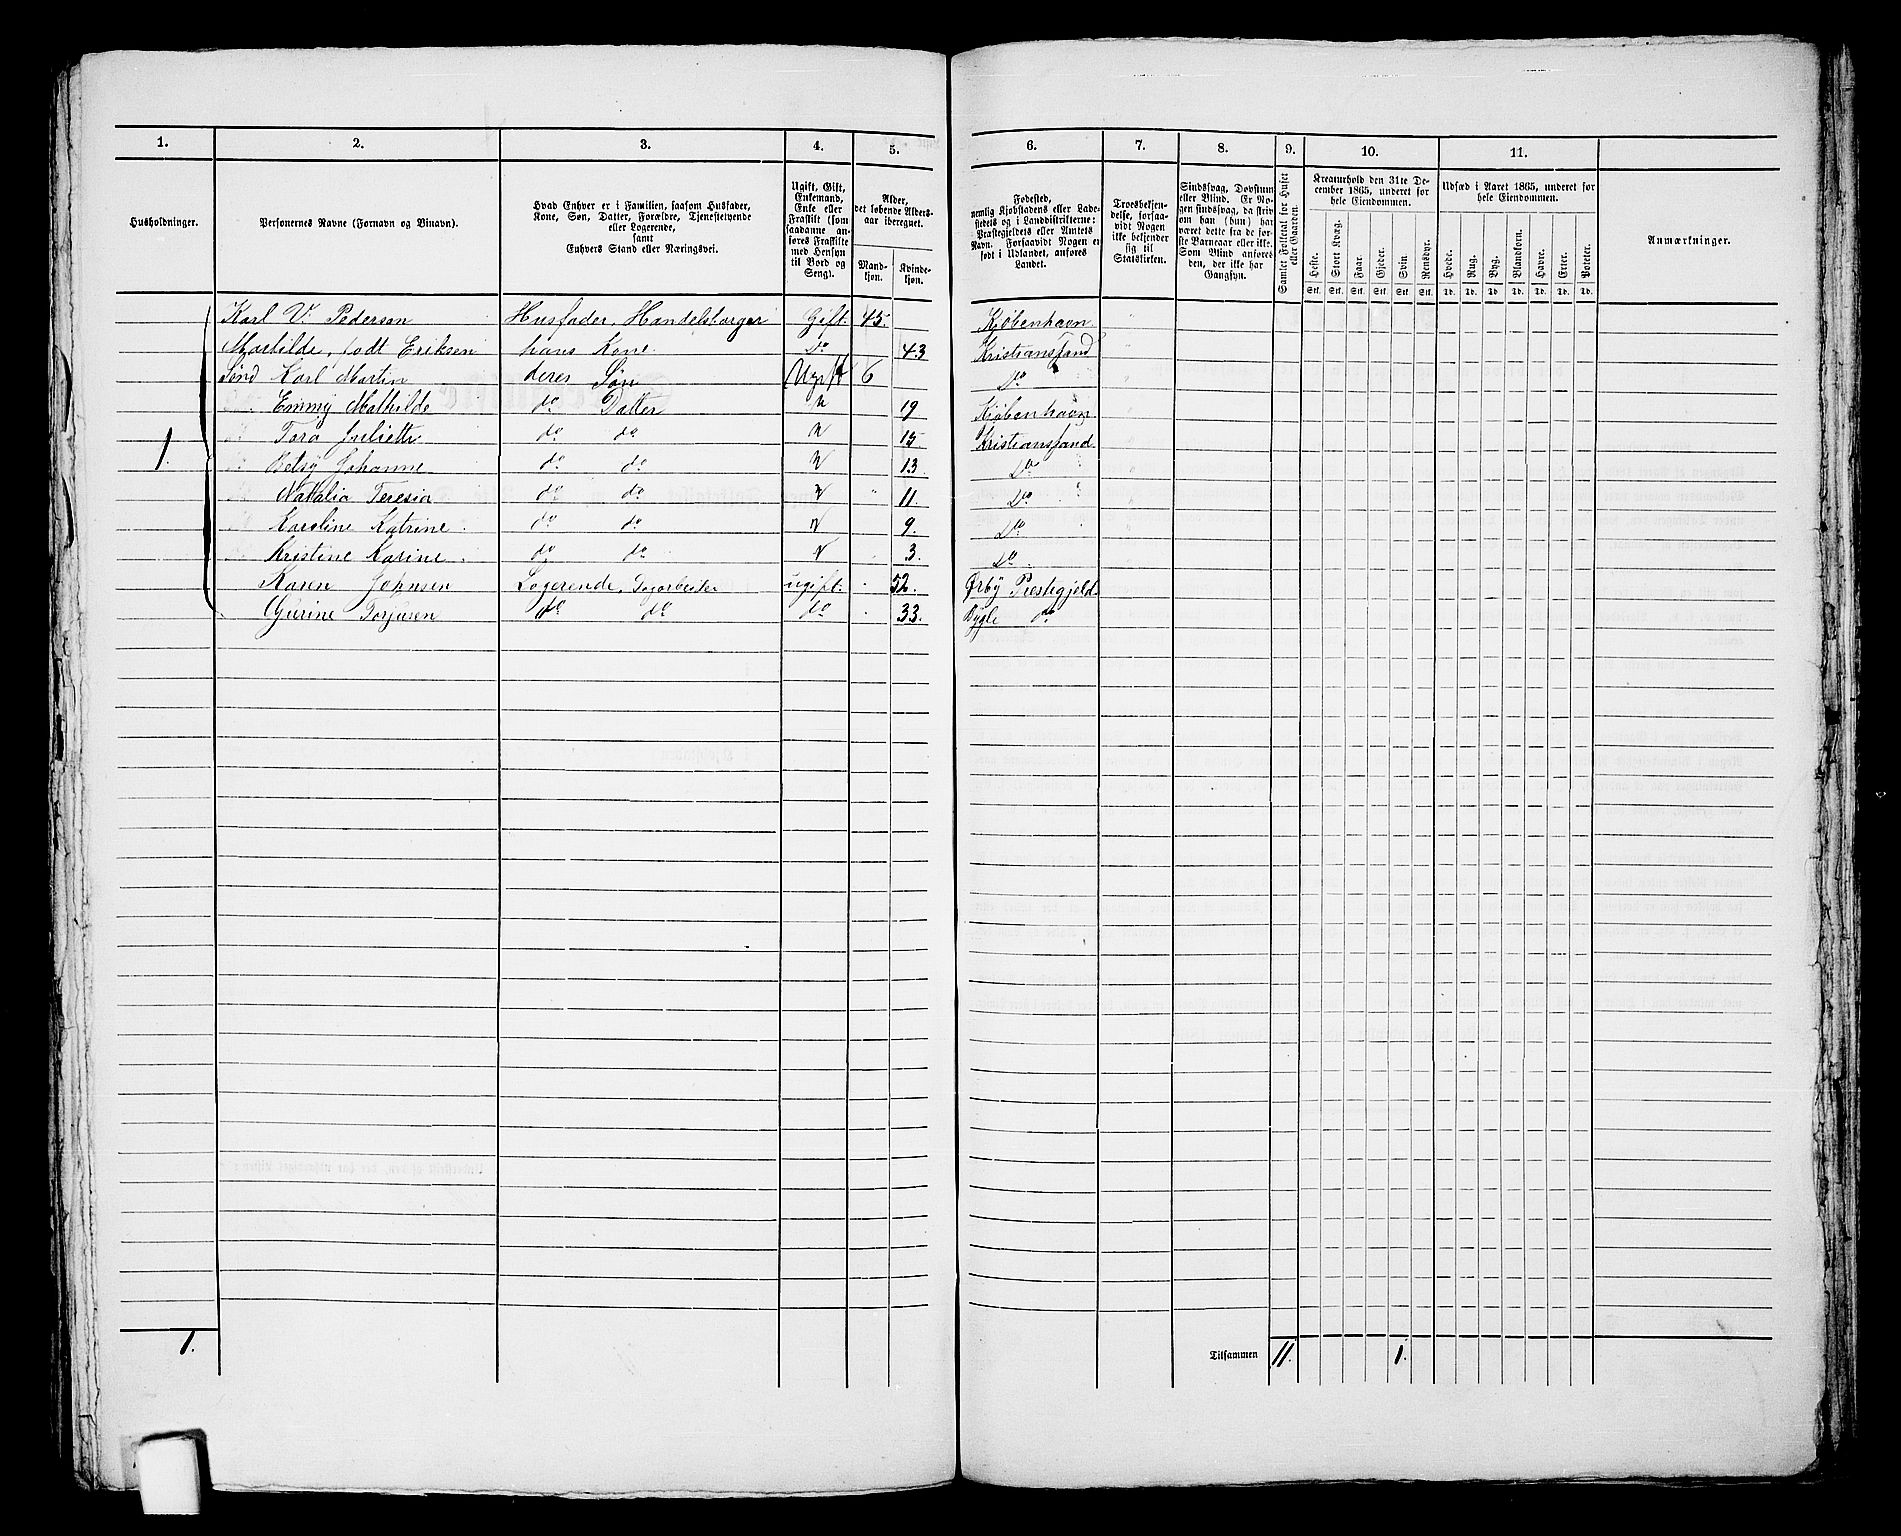 1. 2. 3. 4. 5. 6. 7. 8. 9. 10. 11.
Husholdninger.
Personernes Navne (Fornavn og Binavn).
Hvad Enhver er i Familien, saasom Husfader,
Kone, Søn, Datter, Forældre, Tjenestetyende
eller Logerende,
samt
Enhvers Stand eller Næringsvei.
Ugift, Gift,
Enkemand,
Enke eller
Fraskilt (som
saadanne an-
føres Fraskilte
med Hensyn
til Bord og
Seng).
Alder,
det løbende Alders-
aar iberegnet.
Mand-
kjøn.
Kvinde-
kjøn.
Fødested,
nemlig Kjøbstadens eller Lade-
stedets og i Landdistrikterne:
Præstegjeldets eller Amtets
Navn. I Forsaavidt Nogen er
født i Udlandet, anføres
Landet.
Troesbekjen-
delse, forsaa-
vidt Nogen
ikke bekjender
sig til
Statskirken.
Sindssvag, Døvstum
eller Blind. Er No-
gen sindssvag, da skriv
om han (hun) har
været dette fra de før-
ste Barneaar eller ikke.
Som Blind anføres
den, der ikke har
Gangsyn.
Samlet Folketal for Huset
eller Gaarden.
Kreaturhold den 31te De-
cember 1865, underet for
hele Eiendommen.
Heste. Stort Kvæg. Faar. Gjeder. Svin. Rensdyr.
Stk. Stk. Stk. Stk. Stk. Stk.
Udsæd i Aaret 1865, underet for
hele Eiendommen.
Hvede. Rug. Byg. Blandkorn. Havre. Erter. Poteter.
Td. Td. Td. Td. Td. Td. Td.
Anmærkninger.
Karl V. Pedersen Husfader, Handelsborger Gift. 45. Kjøbenhavn
Mathilde, født Eriksen hans Kone do 43 Kristianssand
Sønd Karl Martin deres Søn Ugift 6 Do
Emmy Mathilde do Datter U 19 Kjøbenhavn
Tora Juliette do do U 15 Kristianssand
1. Betsy Johanne do do U 13 Do
Natalia Teresia do do U 11. Do
Karoline Katrine do do U 9. Do
Kristine Karine do do U 3. Do
Karen Johnsen Logerende, ugift 52.
Gurine Torjusen do do do 33. Bygle do
1. Tilsammen 11. 1.